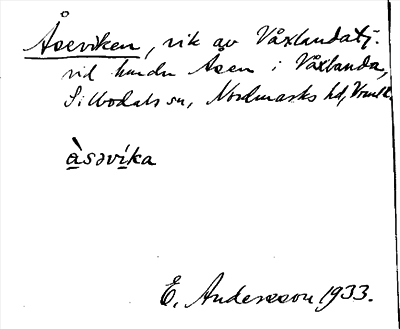 Åseviken, vik av Våxlandatj.
vid hmdn Åsen i Våxlanda,
Silbodals sn, Nordmarks hd, Vrml.
åsəvika
E. Andersson 1933.